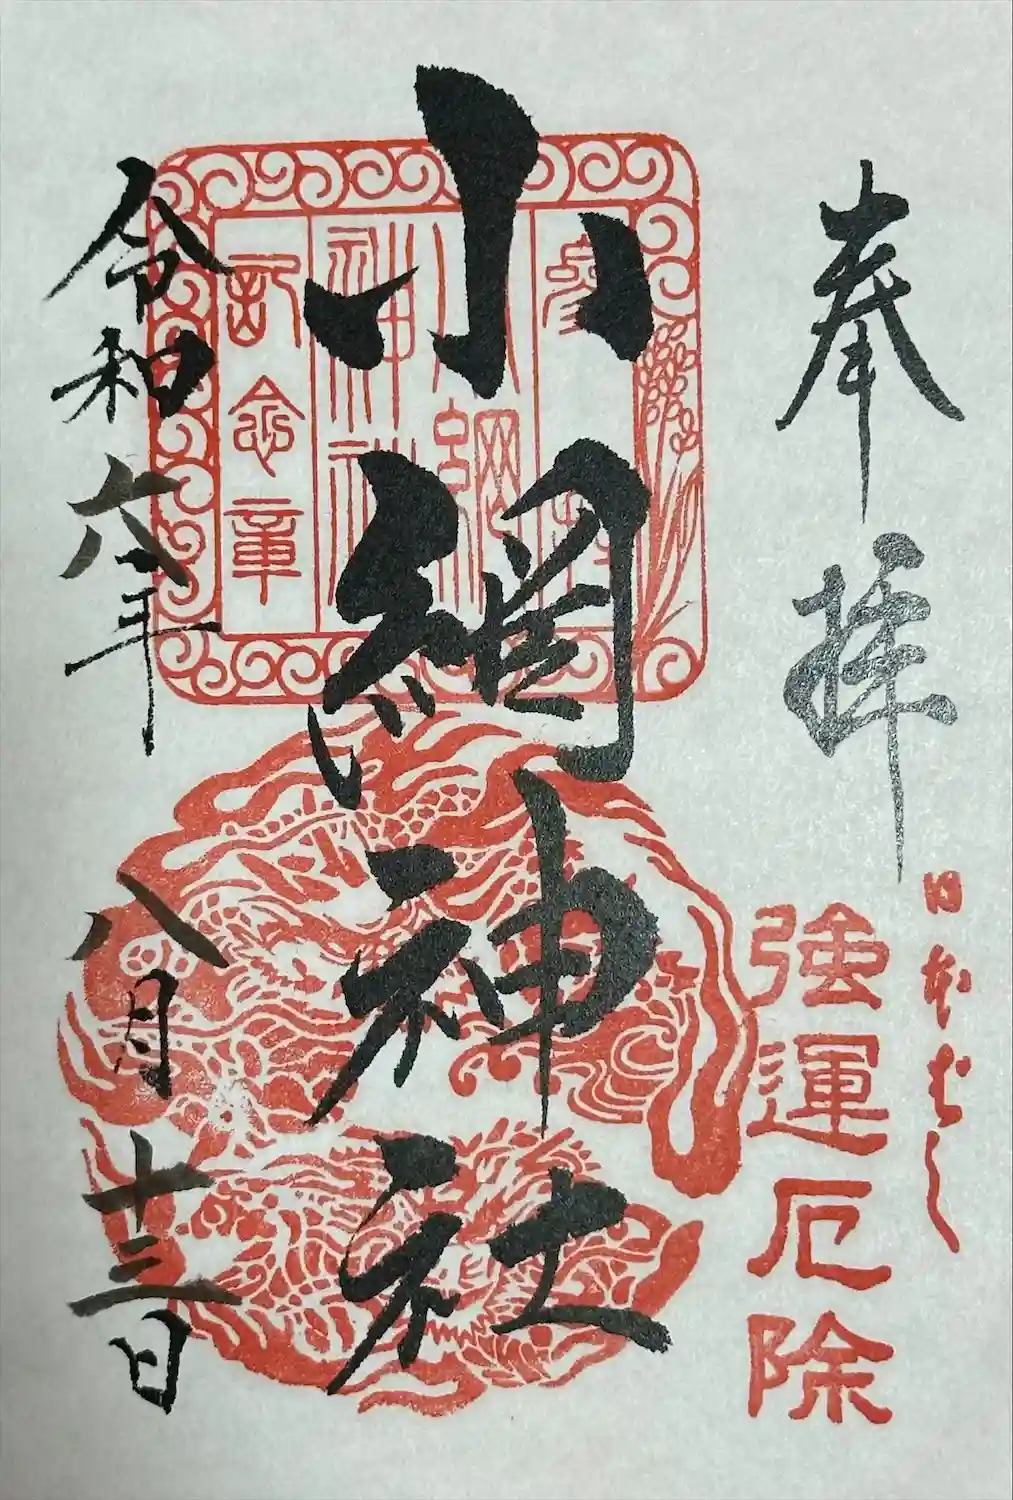 奉拝
日本ばし
強運厄除
小網神社
参拝
小網神社
記念章
令和六年八月十三日